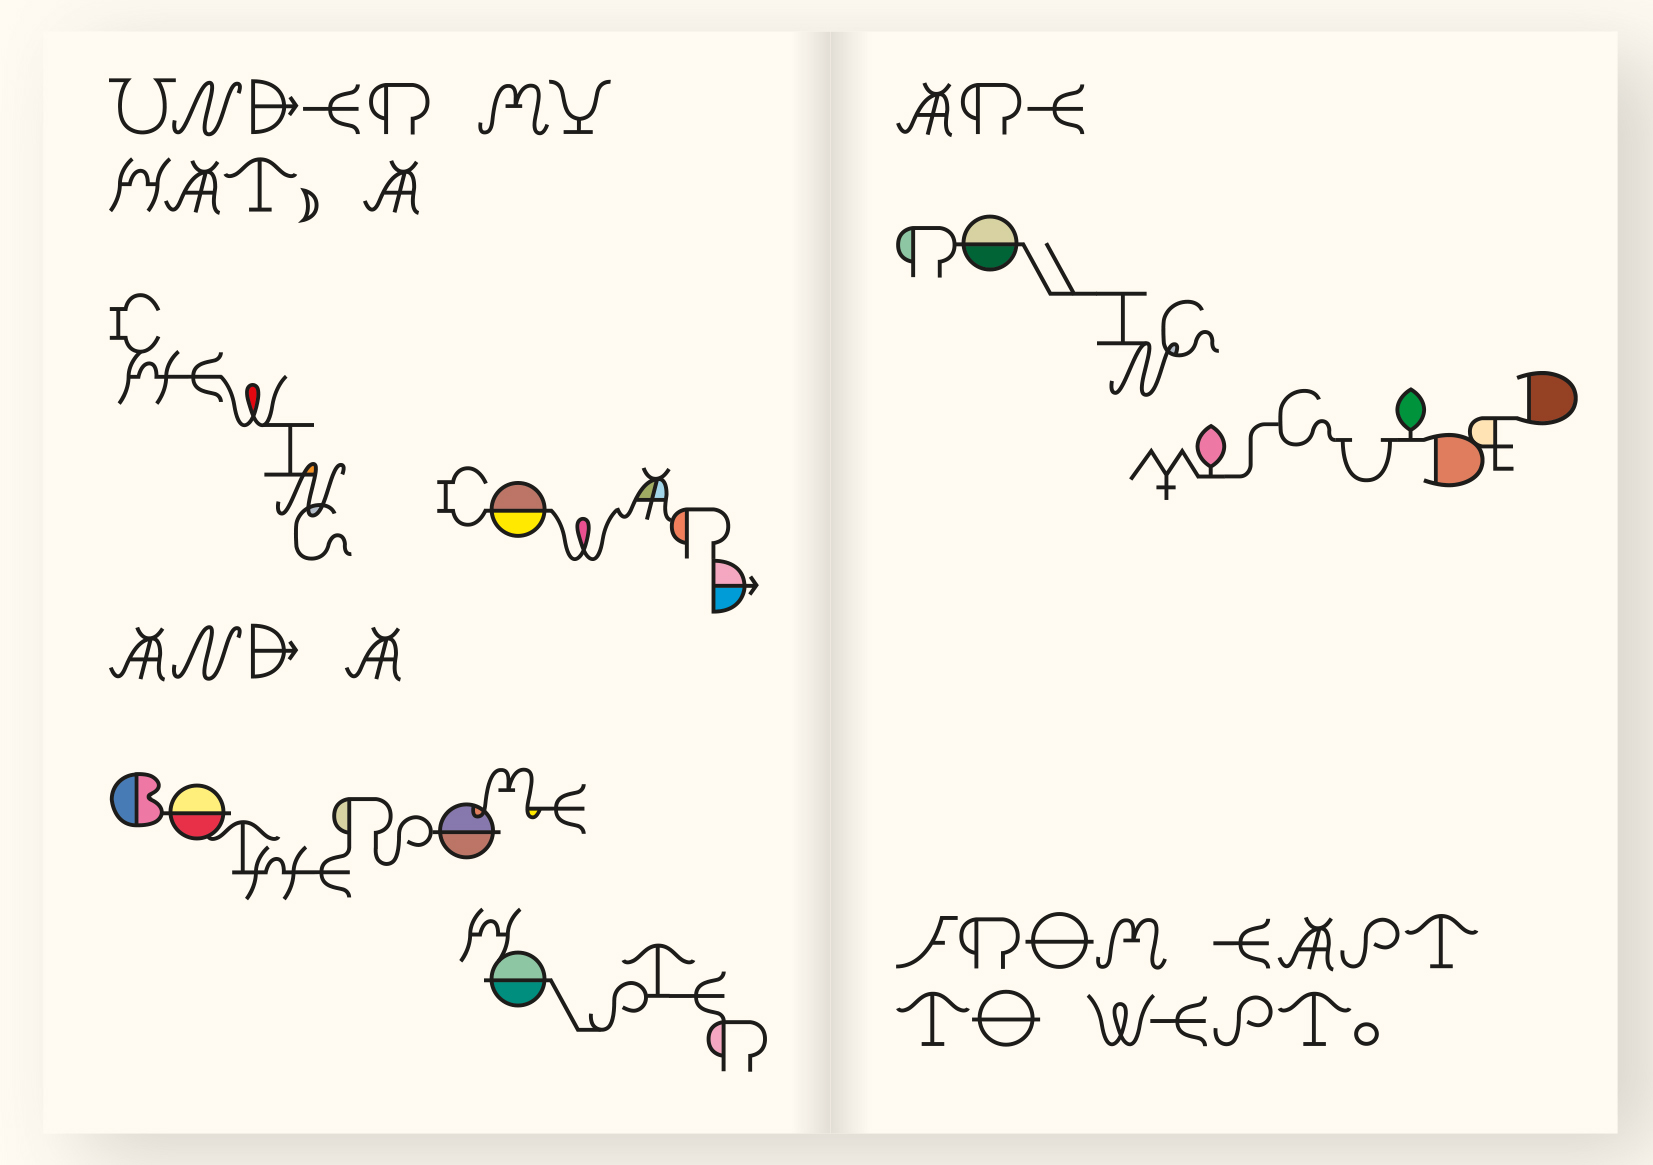 UNDER MY
HAT, A
CHEWING
COWARD
AND A
BOTHERSOME
HOLSTER
ARE
ROLLING
MISGUIDED
FROM EAST
TO WEST.